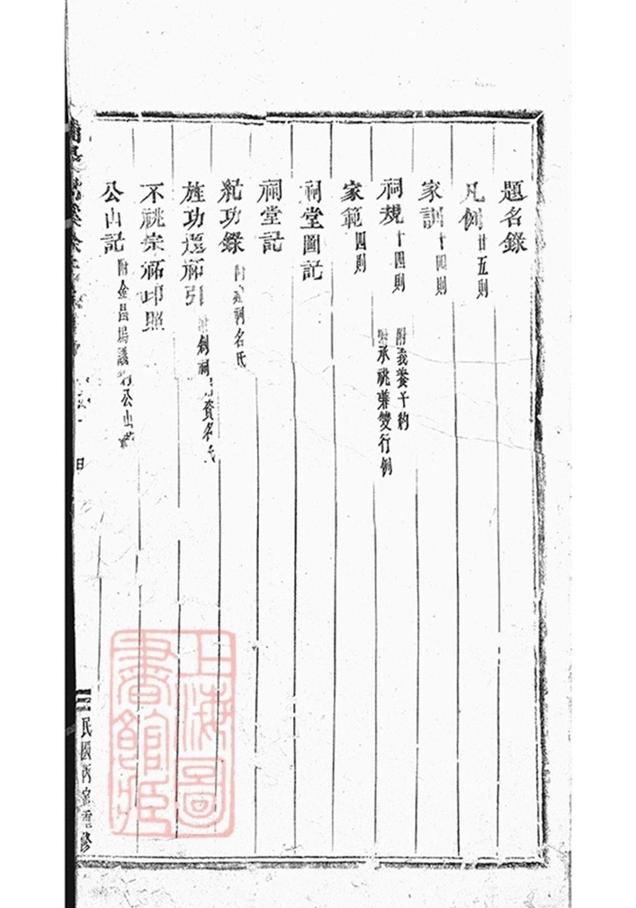 題名錄
凡例廿五則
家訓十四則
祠規十四則 附義養子約
附承祧兼雙行例
家範四則
祠堂圖記
祠堂記
紀功錄附 祠名氏
旌功遷祔引 創祠 名氏
不祧宗祏印照
公山記附金昌塢議 公山
民國丙 重修
上海圖書館藏